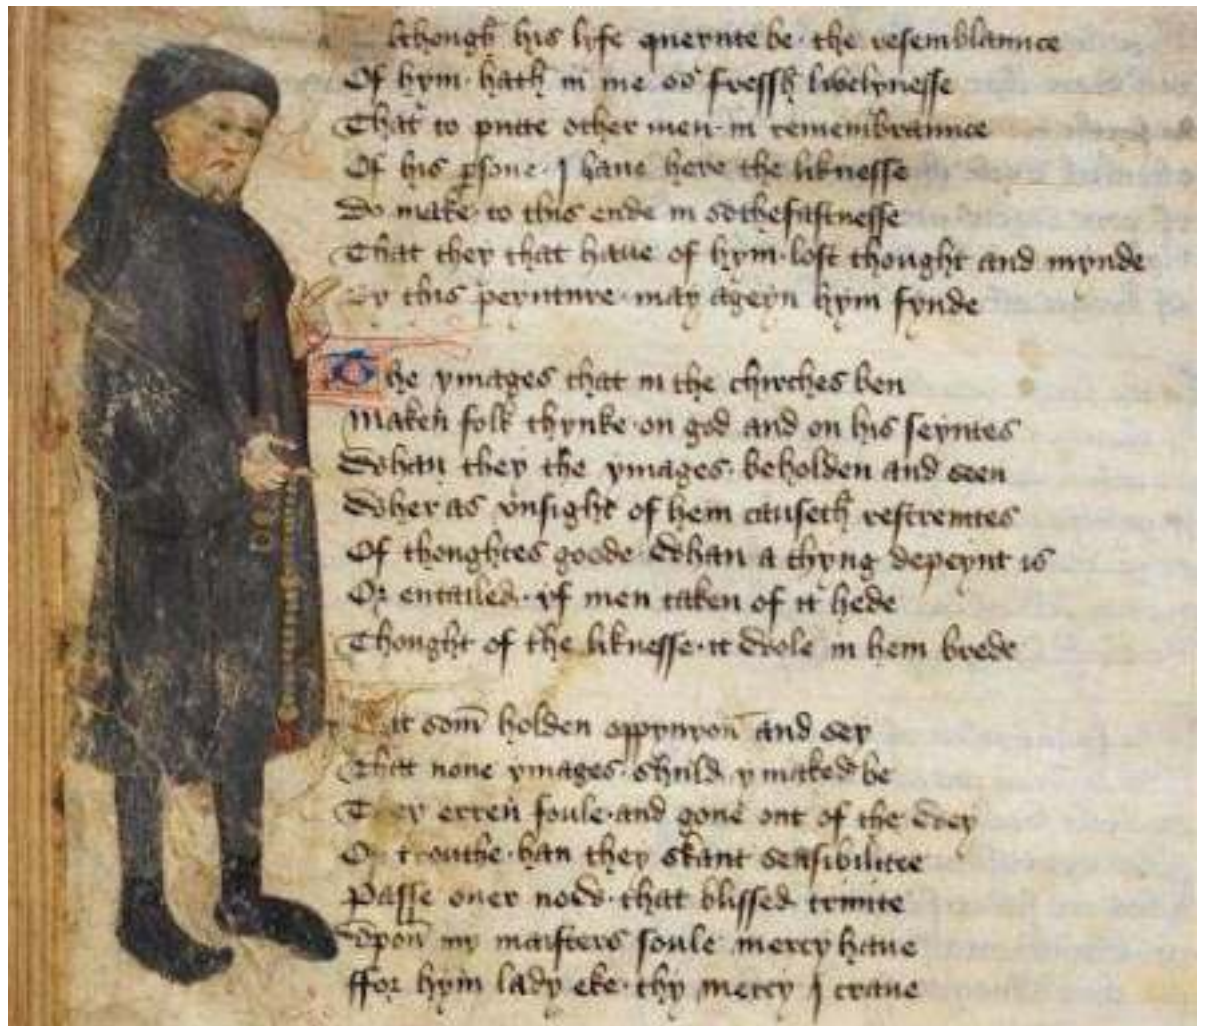 lthough his lyfe queynte be · the resemblaunce
Of hym · hath in me so fressh lyvelynesse
That to putte other men · in remembraunce
Of his psone · I haue here the liknesse
Do make · to this ende in sothefastnesse
That they that haue of hym · lost thought and mynde
By this peynture · may ageyn hym fynde
The ymages that in the chirches ben
Maken folk thynke · on god and on his seyntes
Whan they the ymages · beholden and seen
Wher as vnsight of hem causeth restreintes
Of thoughtes goode · Whan a thyng depeynt is
Or entailed · yf men taken of it hede
Thought of the liknesse · it wole in hem brede
it som holden oppynyon and sey
That none ymages · shuld ymaked be
They erren foule · and gone out of the wey
Of trouthe · han they skant sensibilitee
Passe ouer now · that blissed trinite
Vpon my maisters soule mercy haue
ffor hym lady eke · thy mercy I craue